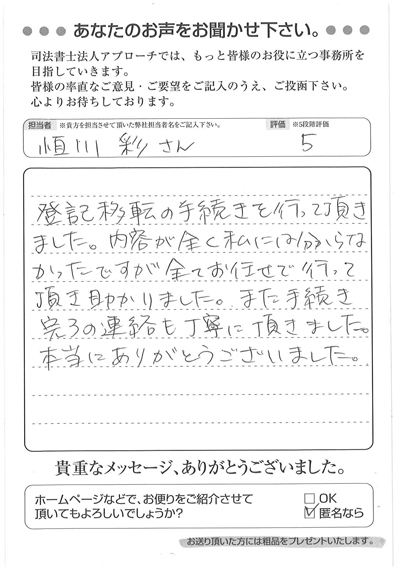 あなたのお声をお聞かせ下さい。
司法書士法人アプローチでは、もっと皆様のお役に立つ事務所を
目指していきます。
皆様の率直なご意見・ご要望をご記入のうえ、ご投函下さい。
心よりお待ちしております。
担当者 ※貴方を担当させて頂いた弊社担当者名をご記入下さい。 評価 ※5段階評価
恒川 彩さん 5
登記移転の手続きを行って頂き
ました。内容が全く私には分からな
かったですが全てお任せで行って
頂き助かりました。また手続き
完了の連絡も丁寧に頂きました。
本当にありがとうございました。
貴重なメッセージ、ありがとうございました。
ホームページなどで、お便りをご紹介させて
頂いてもよろしいでしょうか?
OK
匿名なら
お送り頂いた方には粗品をプレゼントいたします。